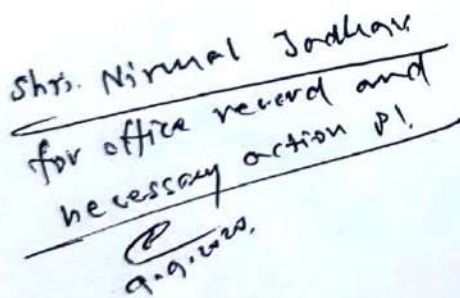 Shri. Nirmal Jadhav
for office record and
necessary action pl.
9.9.2020.